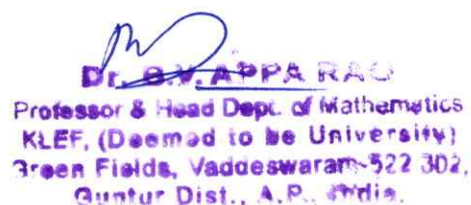 Dr. B.V. APPA RAO
Professor & Head Dept. of Mathematics
KLEF, (Deemed to be University)
Green Fields, Vaddeswaram-522 302,
Guntur Dist., A.P., India.